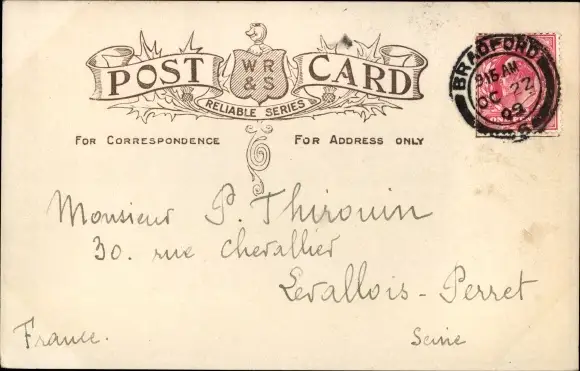 POST CARD
W R
& S
RELIABLE SERIES
FOR CORRESPONDENCE
FOR ADDRESS ONLY
BRADFORD
9.15 AM
OC 22
09
Monsieur P. Thirouin
30. rue Chevallier
Levallois-Perret
France.
Seine